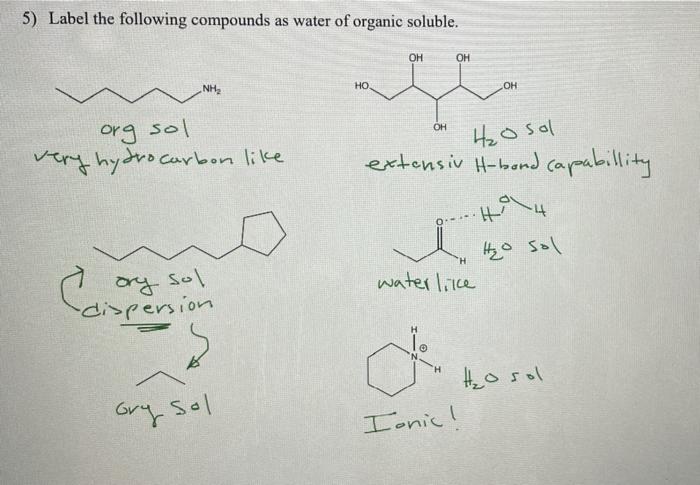 5) Label the following compounds as water of organic soluble.
NH₂
org sol
very hydrocarbon like
OH OH
HO OH
OH
H₂O sol
extensiv H-bond capabillity
org sol
dispersion
O H O H
H
H₂O sol
water like
org sol
H
⊕
N
H
H₂O sol
Ionic!